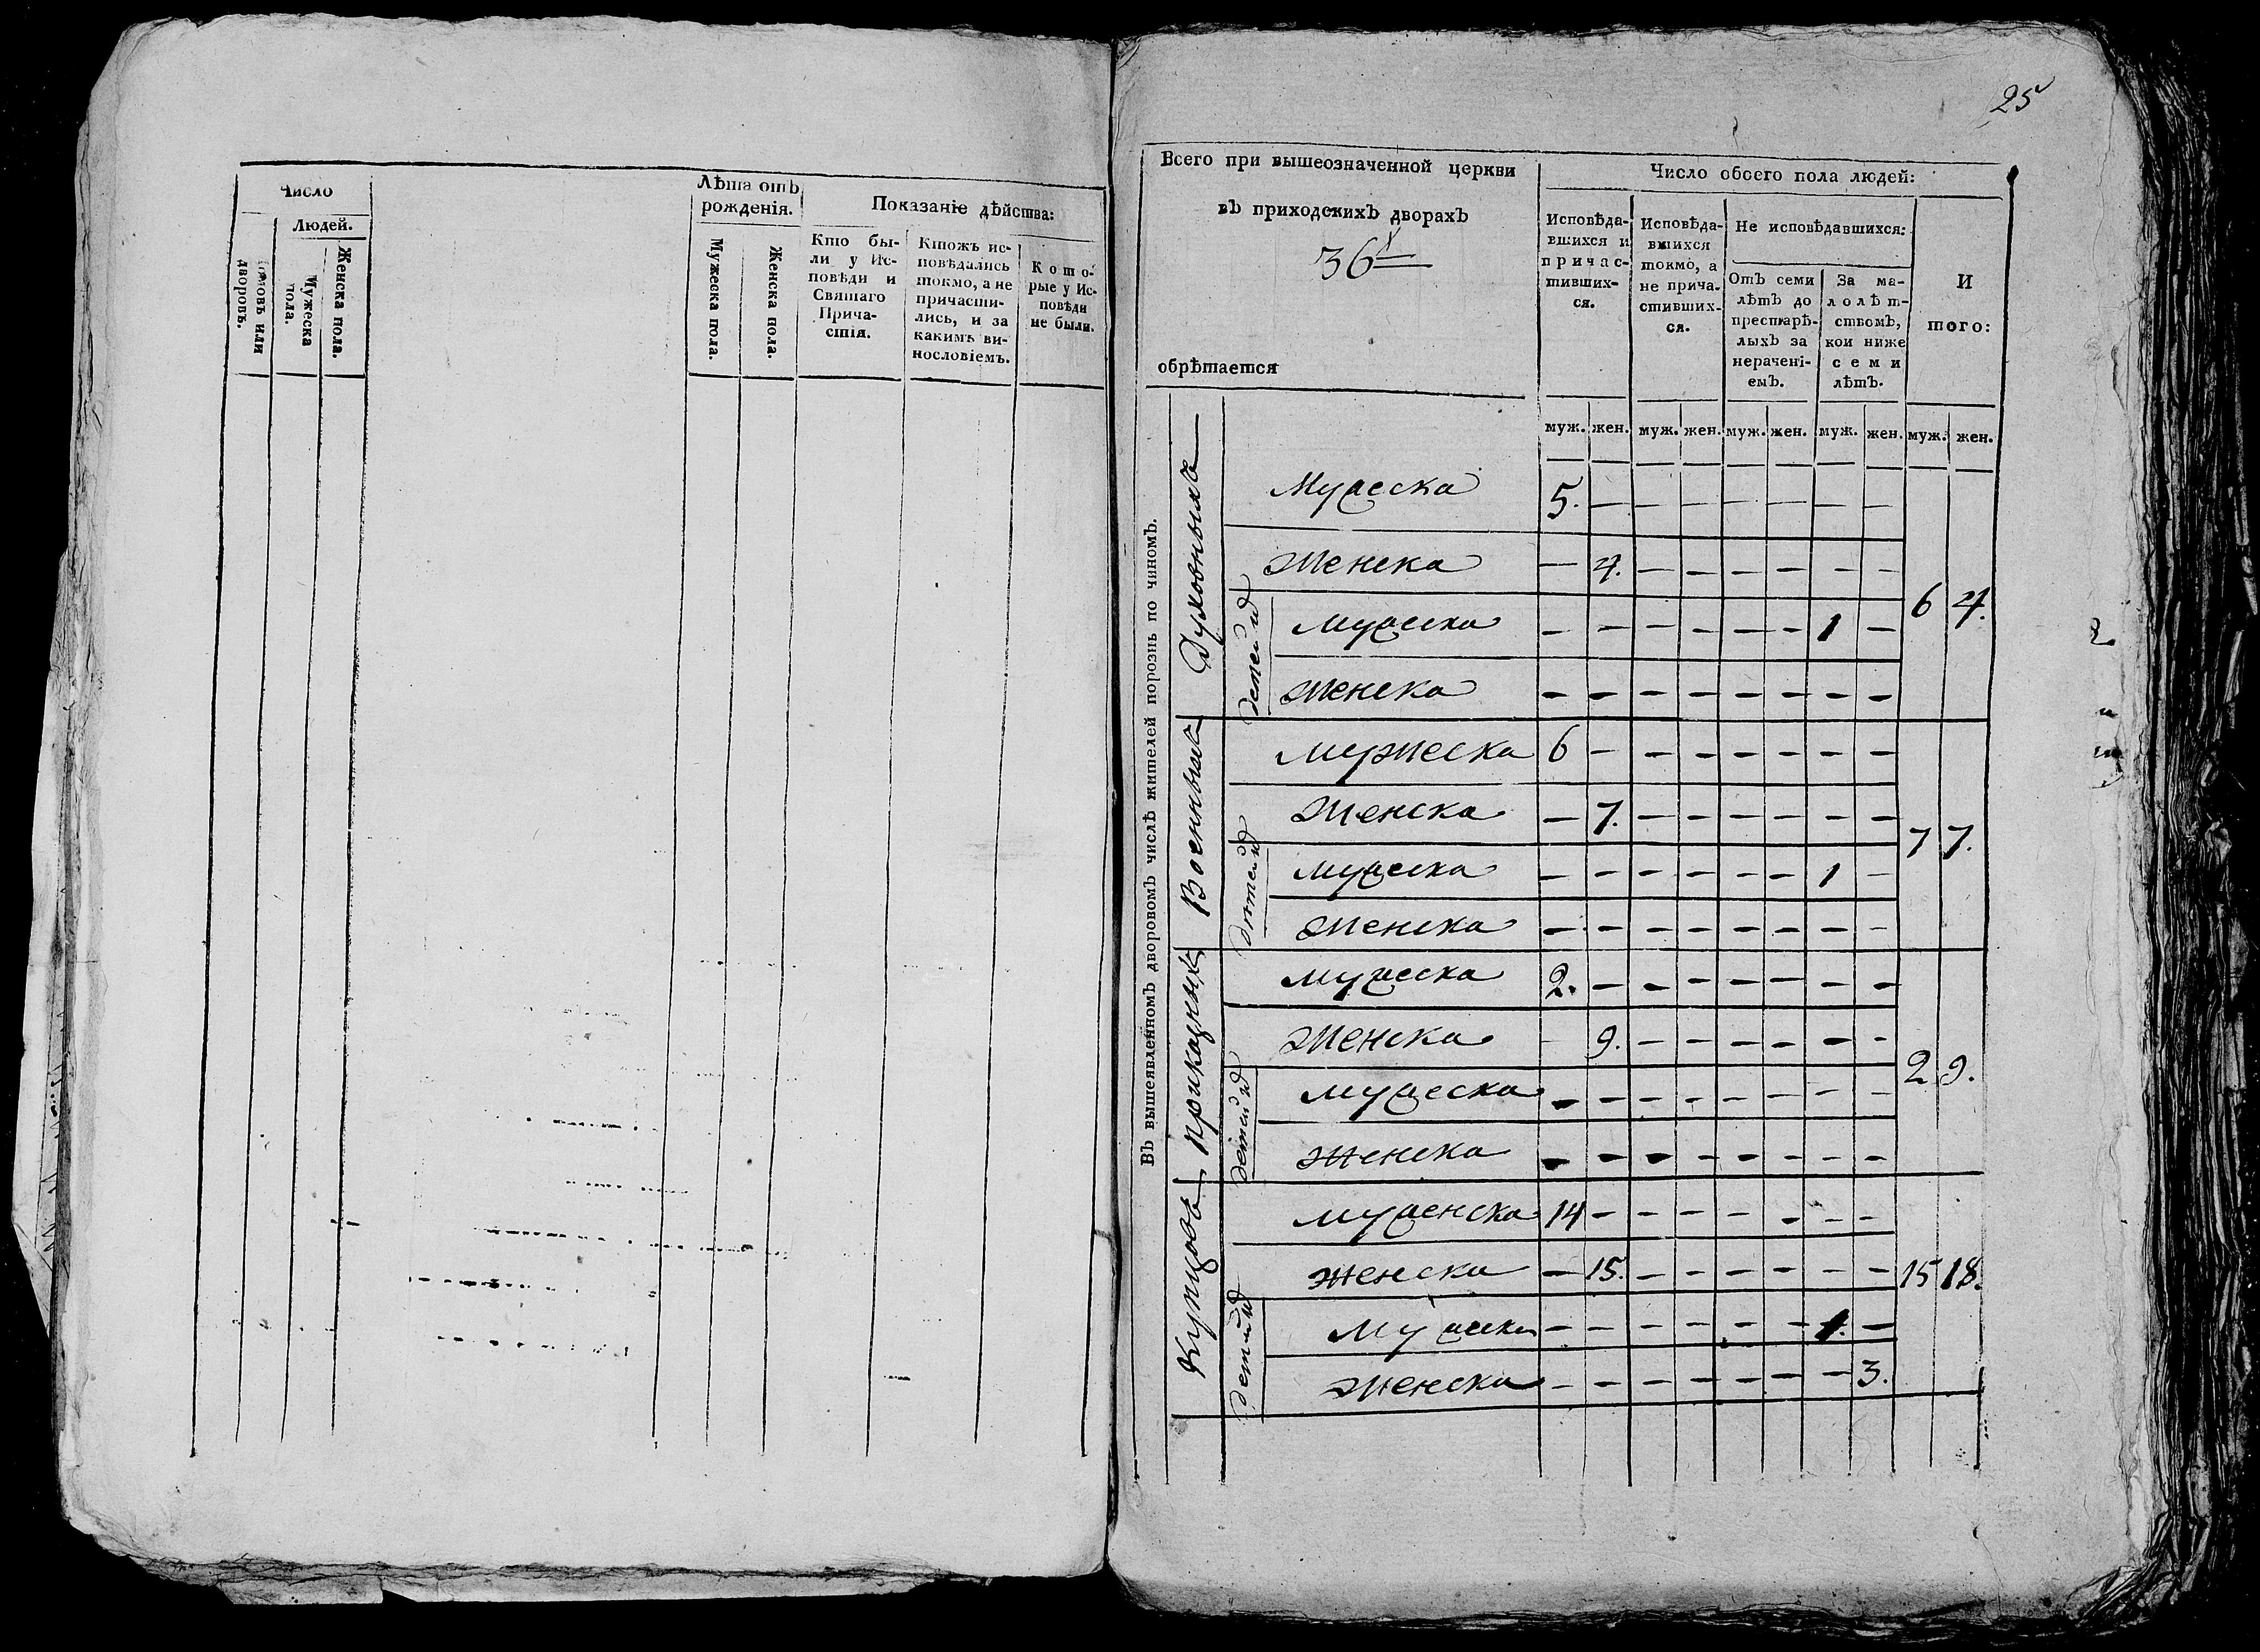 Число
Людей.
домовъ или дворовъ.
Мужеска пола.
Женска пола.
Лѣта отъ рожденія.
Мужеска пола.
Женска пола.
Показаніе дѣйства:
Кто бы-
ли у Ис-
повѣди и
Святаго
Прича-
стія.
Ктожъ ис-
повѣдались
токмо, а не
причасти-
лись, и за
какимъ ви-
нословіемъ.
Кото-
рые у Ис-
повѣди
не были.
25
Всего при вышеозначенной церкви
въ приходскихъ дворахъ
36
обрѣтается
Число обоего пола людей:
Исповѣда-
вшихся и
причас-
тивших-
ся.
Исповѣда-
вшихся
токмо, а
не прича-
стивших-
ся.
Не исповѣдавшихся:
Отъ семи
лѣтъ до
престарѣ-
лыхъ за
нерачені-
емъ.
За ма-
лолѣт-
ствомъ,
кои ниже
семи
лѣтъ.
И
того:
муж. жен. муж. жен. муж. жен. муж. жен. муж. жен.
Въ вышеявленномъ дворовомъ числѣ жителей порознь по чиномъ.
Духовныхъ
Мужеска 5. — — — — — — —
Женска — 4. — — — — — —
детей их
Мужеска — — — — — — 1 —
Женска — — — — — — — —
6 4.
Военныхъ
Мужеска 6 — — — — — — —
Женска — 7. — — — — — —
детей их
Мужеска — — — — — — 1 —
Женска — — — — — — — —
7 7.
Приказныхъ
Мужеска 2. — — — — — — —
Женска — 9. — — — — — —
детей их
Мужеска — — — — — — — —
Женска — — — — — — — —
2 9.
Купцовъ
Муженска 14 — — — — — — —
Женска — 15. — — — — — —
детей их
Мужеска — — — — — — 1. —
Женска — — — — — — — 3.
15 18.